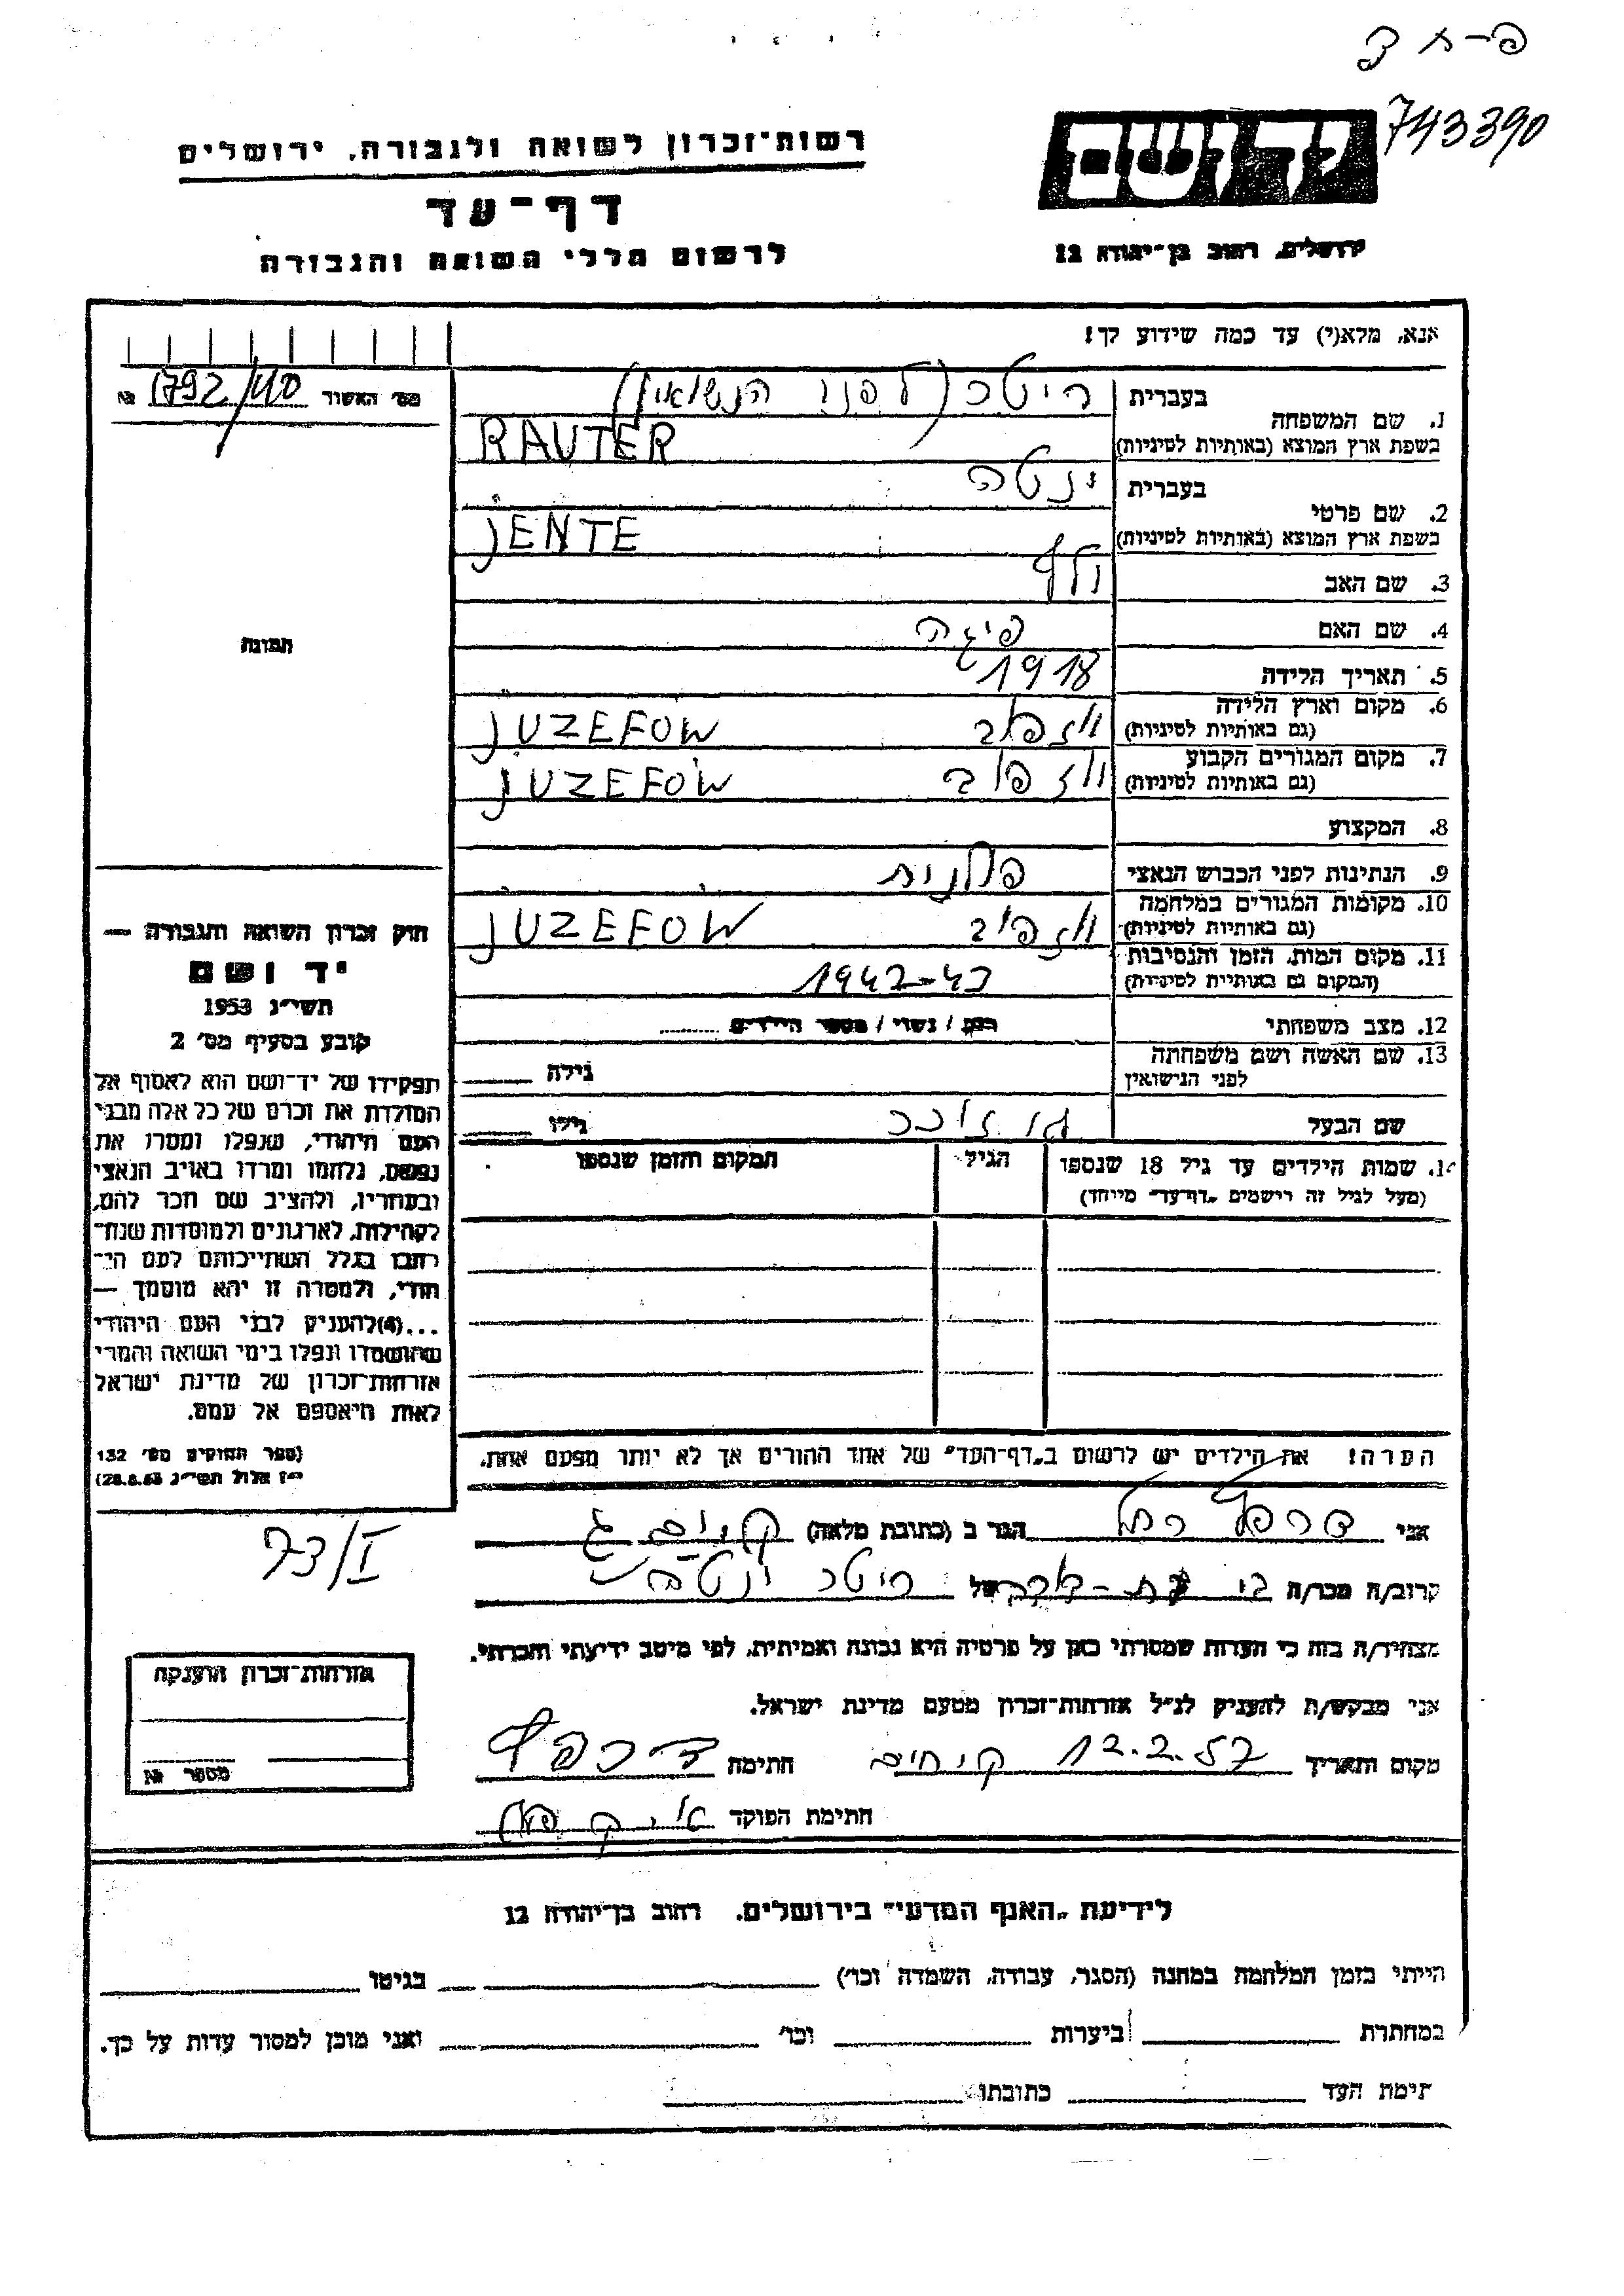 743390
יד ושם
ירושלים, רחוב בן־יהודה 12
רשות־זכרון לשואה ולגבורה, ירושלים
דף־עד
לרשום חללי השואה והגבורה
אנא, מלא(י) עד כמה שידוע לך!
מס׳ האשור 1792/40 №
1. שם המשפחה
בעברית ריטר (לפני הנשואין)
בשפת ארץ המוצא (באותיות לטיניות) RAUTER
2. שם פרטי
בעברית ינטה
בשפת ארץ המוצא (באותיות לטיניות) JENTE
3. שם האב וולף
4. שם האם פיגה
5. תאריך הלידה 1918
6. מקום וארץ הלידה
(גם באותיות לטיניות) יוזפוב JUZEFOW
7. מקום המגורים הקבוע
(גם באותיות לטיניות) יוזפוב JUZEFOW
8. המקצוע
9. הנתינות לפני הכבוש הנאצי פולנית
10. מקומות המגורים במלחמה
(גם באותיות לטיניות) יוזפוב JUZEFOW
11. מקום המות, הזמן והנסיבות
(המקום גם באותיות לטיניות) 1942-43
12. מצב משפחתי רווק / נשוי / מספר הילדים
13. שם האשה ושם משפחתה
לפני הנישואין גילה
שם הבעל גילו
14. שמות הילדים עד גיל 18 שנספו הגיל המקום והזמן שנספו
(מעל לגיל זה רישמים „דף־עד״ מייחד)
הערה! את הילדים יש לרשום ב„דף־העד״ של אחד ההורים אך לא יותר מפעם אחת.
תמונה
חוק זכרון השואה והגבורה —
יד ושם
תשי״ג 1953
קובע בסעיף מס׳ 2
תפקידו של יד־ושם הוא לאסוף אל
המולדת את זכרם של כל אלה מבני
העם היהודי, שנפלו ומסרו את
נפשם, נלחמו ומרדו באויב הנאצי
ובעוזריו, ולהציב שם וזכר להם,
לקהילות, לארגונים ולמוסדות שנח־
רבו בגלל השתייכותם לעם הי־
הודי, ולמטרה זו יהא מוסמך —
...(4) להעניק לבני העם היהודי
שהושמדו ונפלו בימי השואה והמרי
אזרחות־זכרון של מדינת ישראל
לאות היאספם אל עמם.
(ספר החוקים מס׳ 132
י״ז אלול תשי״ג 28.8.53)
73/I
אני רחל הגר ב (כתובת מלאה)
קרוב/ה מכר/ה בת-דודה של ריטר ינטה
מצהיר/ה בזה כי העדות שמסרתי כאן על פרטיה היא נכונה ואמיתית, לפי מיטב ידיעתי והכרתי.
אני מבקש/ת להעניק לנ״ל אזרחות־זכרון מטעם מדינת ישראל.
מקום ותאריך 12.2.57 חתימה
חתימת הפוקד
אזרחות־זכרון הוענקה
מספר №
לידיעת „האגף המדעי״ בירושלים. רחוב בן־יהודה 12
הייתי בזמן המלחמה במחנה (הסגר, עבודה, השמדה וכו׳) בגיטו
במחתרת ביערות וכו׳ ואני מוכן למסור עדות על כך.
תימת העד כתובתו